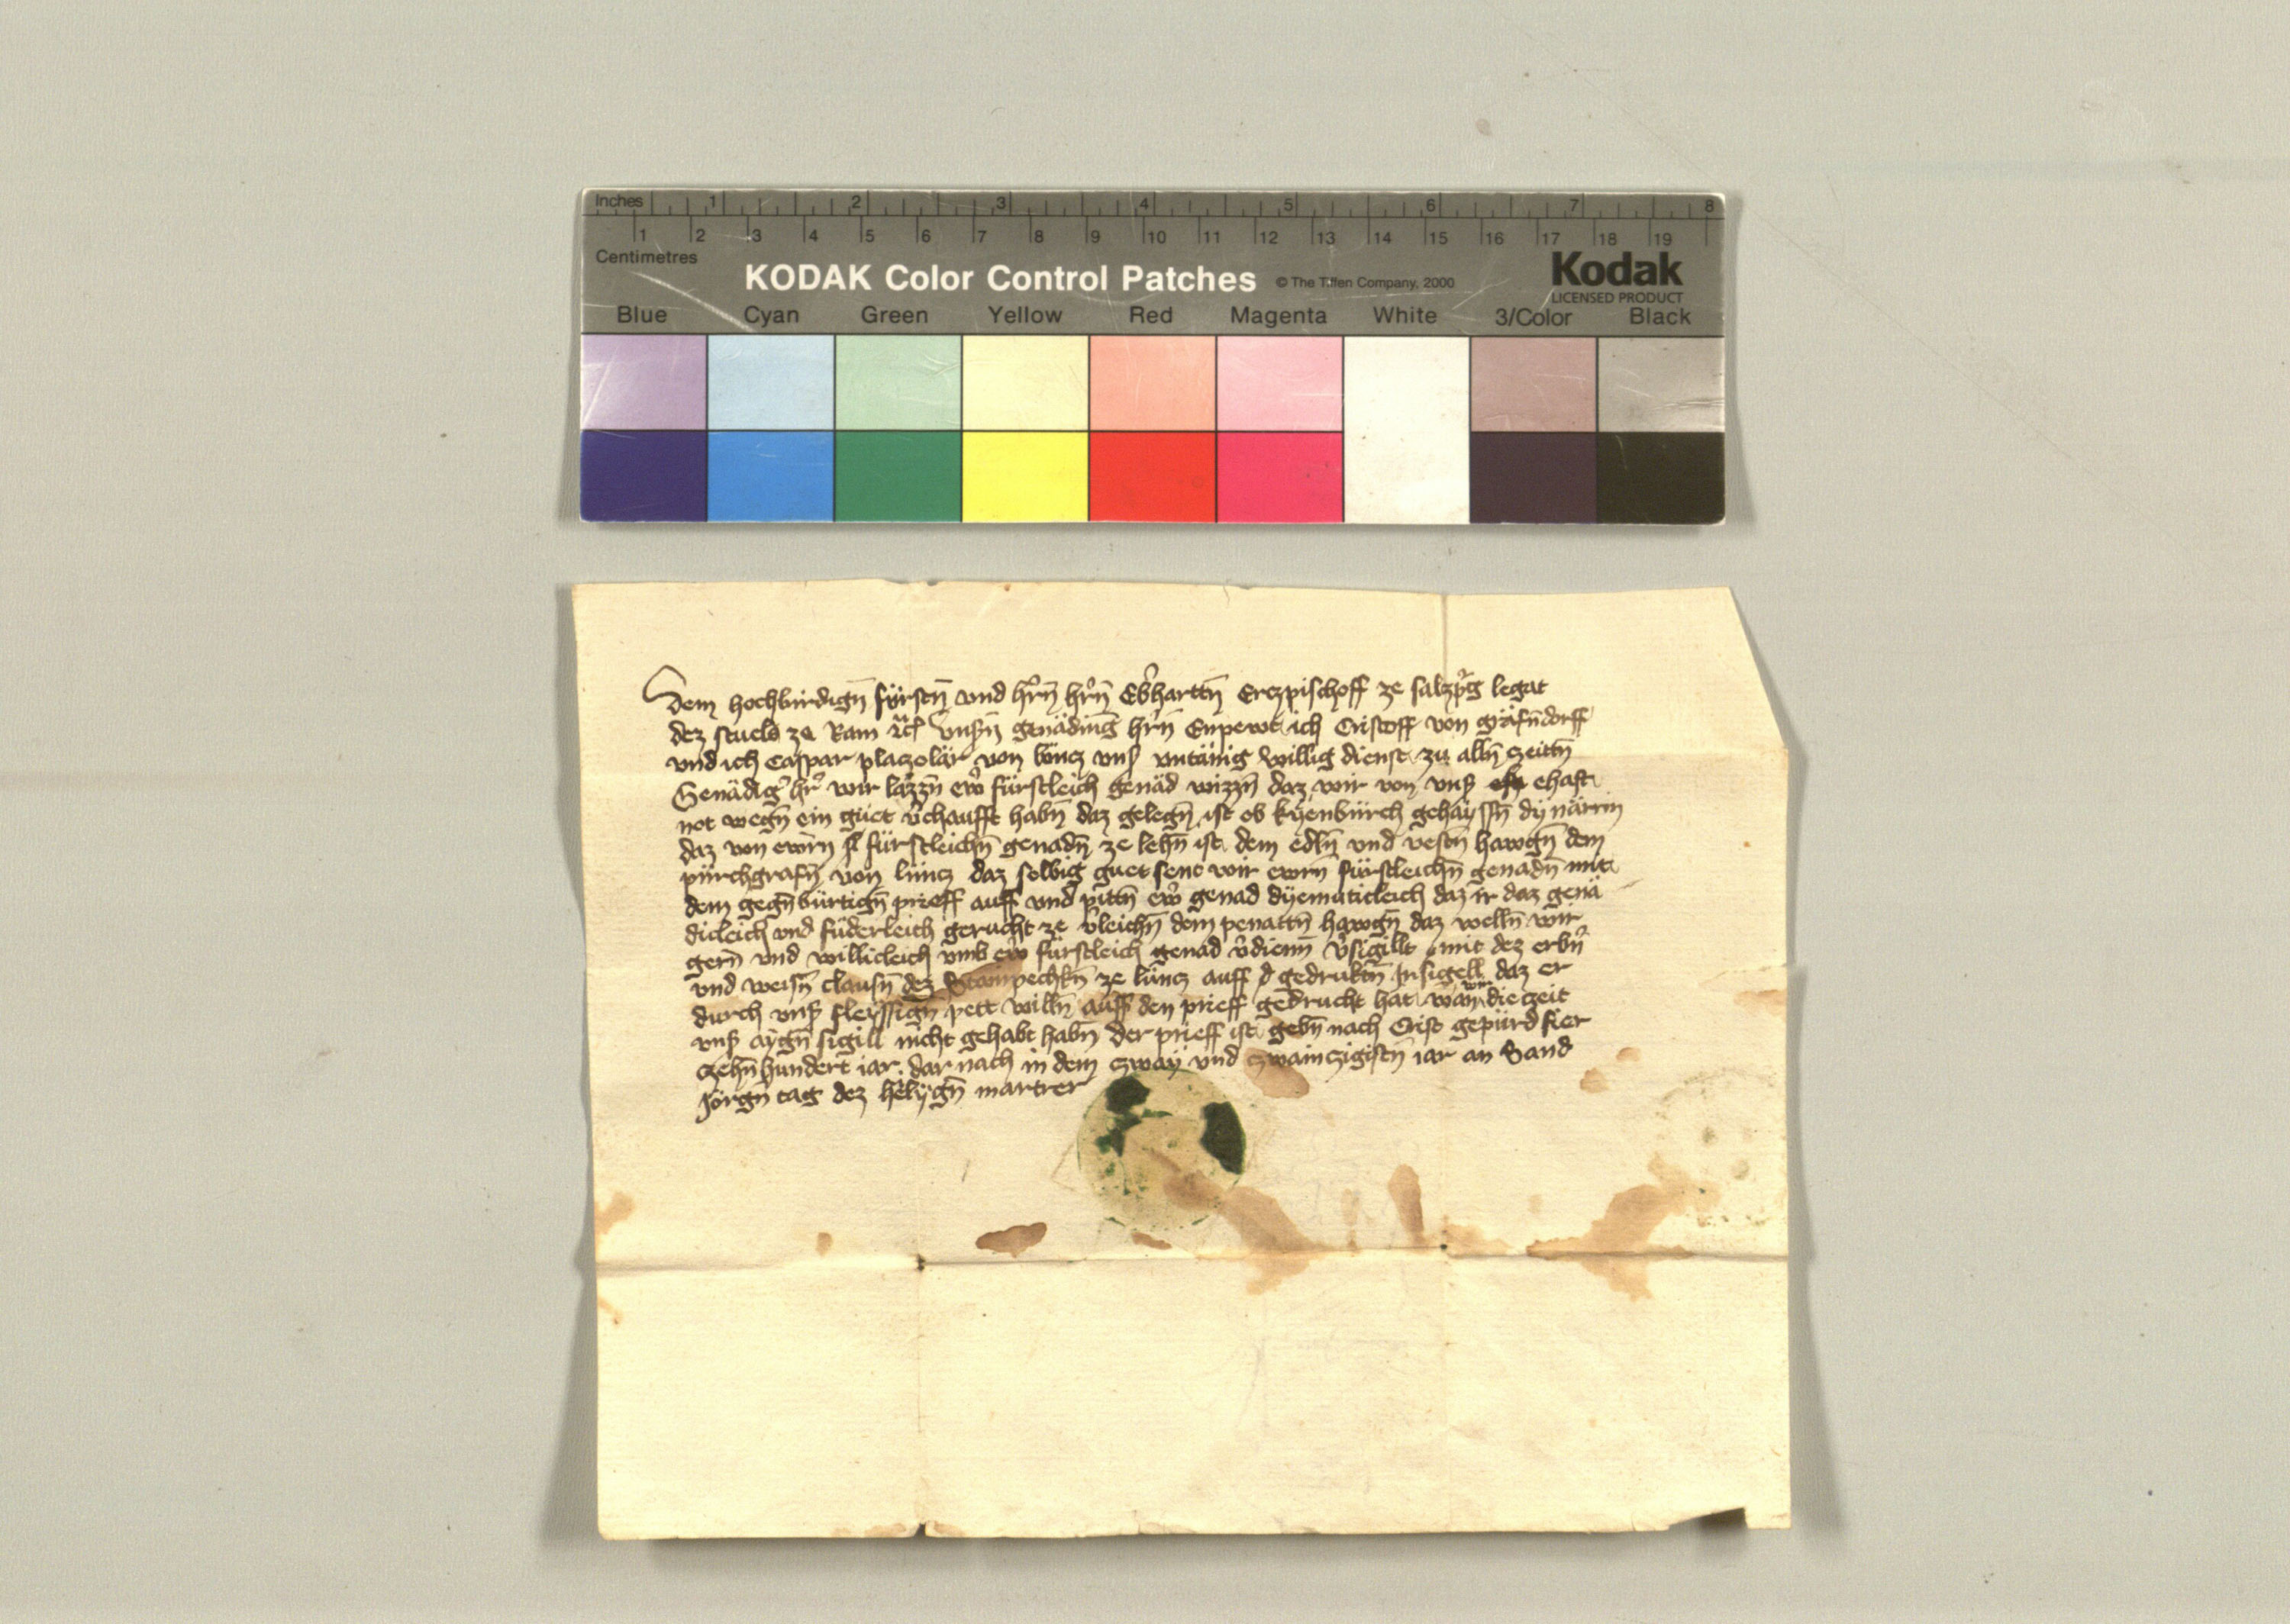 Inches 1 2 3 4 5 6 7 8
1 2 3 4 5 6 7 8 9 10 11 12 13 14 15 16 17 18 19
Centimetres
KODAK Color Control Patches © The Tiffen Company, 2000 Kodak
LICENSED PRODUCT
Blue Cyan Green Yellow Red Magenta White 3/Color Black
Dem hochbirdign̄ fürstn̄ vnd hr̄n̄ hr̄n̄ Eb̄harttn̄ Erczpischoff ze salzp̄g legat
dez stuels ze Ram vnsn̄ genäding hr̄n̄ Enpewt ich Cristoff von gräfn̄dorff
vnd ich Caspar placzolär von lüncz vns̄ vntänig willig dienst zu alln̄ czeittn̄
Genädiḡ hr̄ wir lazzn̄ ew̄ fürstleich genäd wizzn̄ daz wir von vns̄ ehaft
not wegn̄ ein güet v̄chaufft habn̄ daz gelegn̄ ist ob kyenbürch gehayssn̄ dy närrin
daz von ewrn̄ fürstleichn̄ genadn̄ ze lehn̄ ist dem edln̄ vnd vestn̄ hawgn̄ dem
pürchgrafn̄ von lüncz daz selbig guet sent wir ewrn̄ fürstleichn̄ genadn̄ mit
dem gegn̄bürtign̄ prieff auff vnd pittn̄ ew̄ genad dyemüticleich daz ir daz genä
dicleich vnd füderleich gerücht ze v̄leichn̄ dem penantn̄ hawgn̄ daz welln̄ wir
gern̄ vnd willicleich vmb ew̄ fürstleich genad v̄dienn̄ v̄sigillt mit dez erbn̄
vnd weisn̄ clausn̄ dez Stampechkn̄ ze lüncz auff gedruktn̄ Insigell daz er
durch vns̄ fleyssign̄ pett willn̄ auff den prieff gedrucht hat wan wir die zeit
vns̄ aygn̄ sigill nicht gehabt habn̄ der prieff ist gebn̄ nach Crist gepürd fier
czehn̄ hundert iar dar nach in dem czway vnd czwainczigistn̄ iar an Sand
Jörgn̄ tag dez helygn̄ martrer